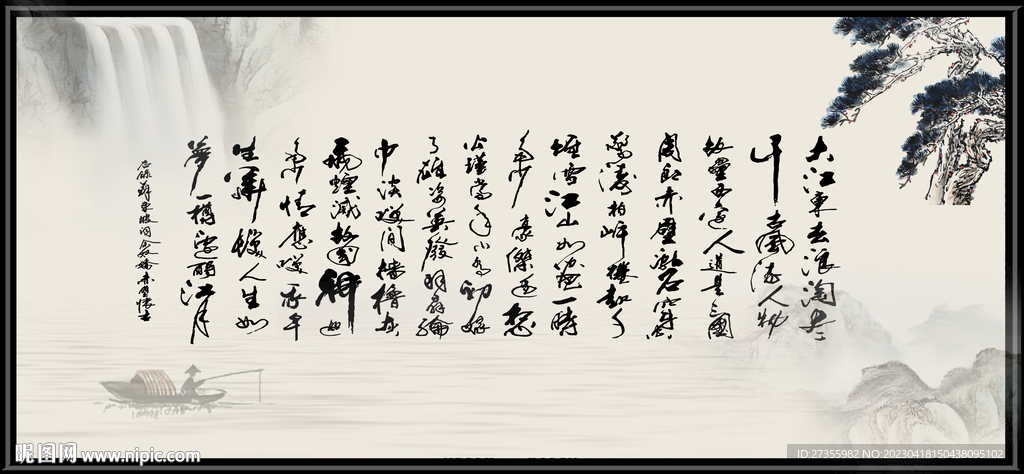 大江東去浪淘盡
千古風流人物
故壘西邊人道是三國
周郎赤壁亂石穿空
驚濤拍岸捲起千
堆雪江山如畫一時
多少豪傑遙想
公瑾當年小喬初嫁
了雄姿英發羽扇綸
巾談笑間檣櫓灰
飛煙滅故國神遊
多情應笑我早
生華髮人生如
夢一樽還酹江月
蘇東坡詞念奴嬌赤壁懷古
昵图网 www.nipic.com
ID:27355982 NO:20230418150438095102